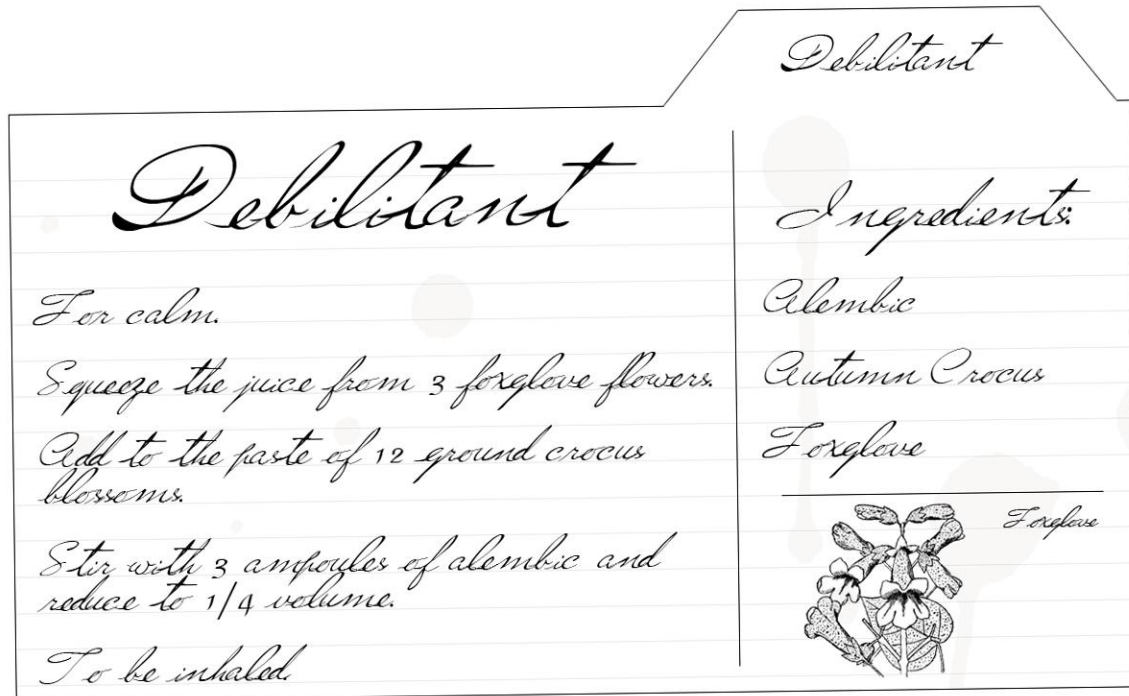 Debilitant
Debilitant
For calm.
Squeeze the juice from 3 foxglove flowers.
Add to the paste of 12 ground crocus
blossoms.
Stir with 3 ampoules of alembic and
reduce to 1/4 volume.
To be inhaled.
Ingredients:
Alembic
Autumn Crocus
Foxglove
Foxglove